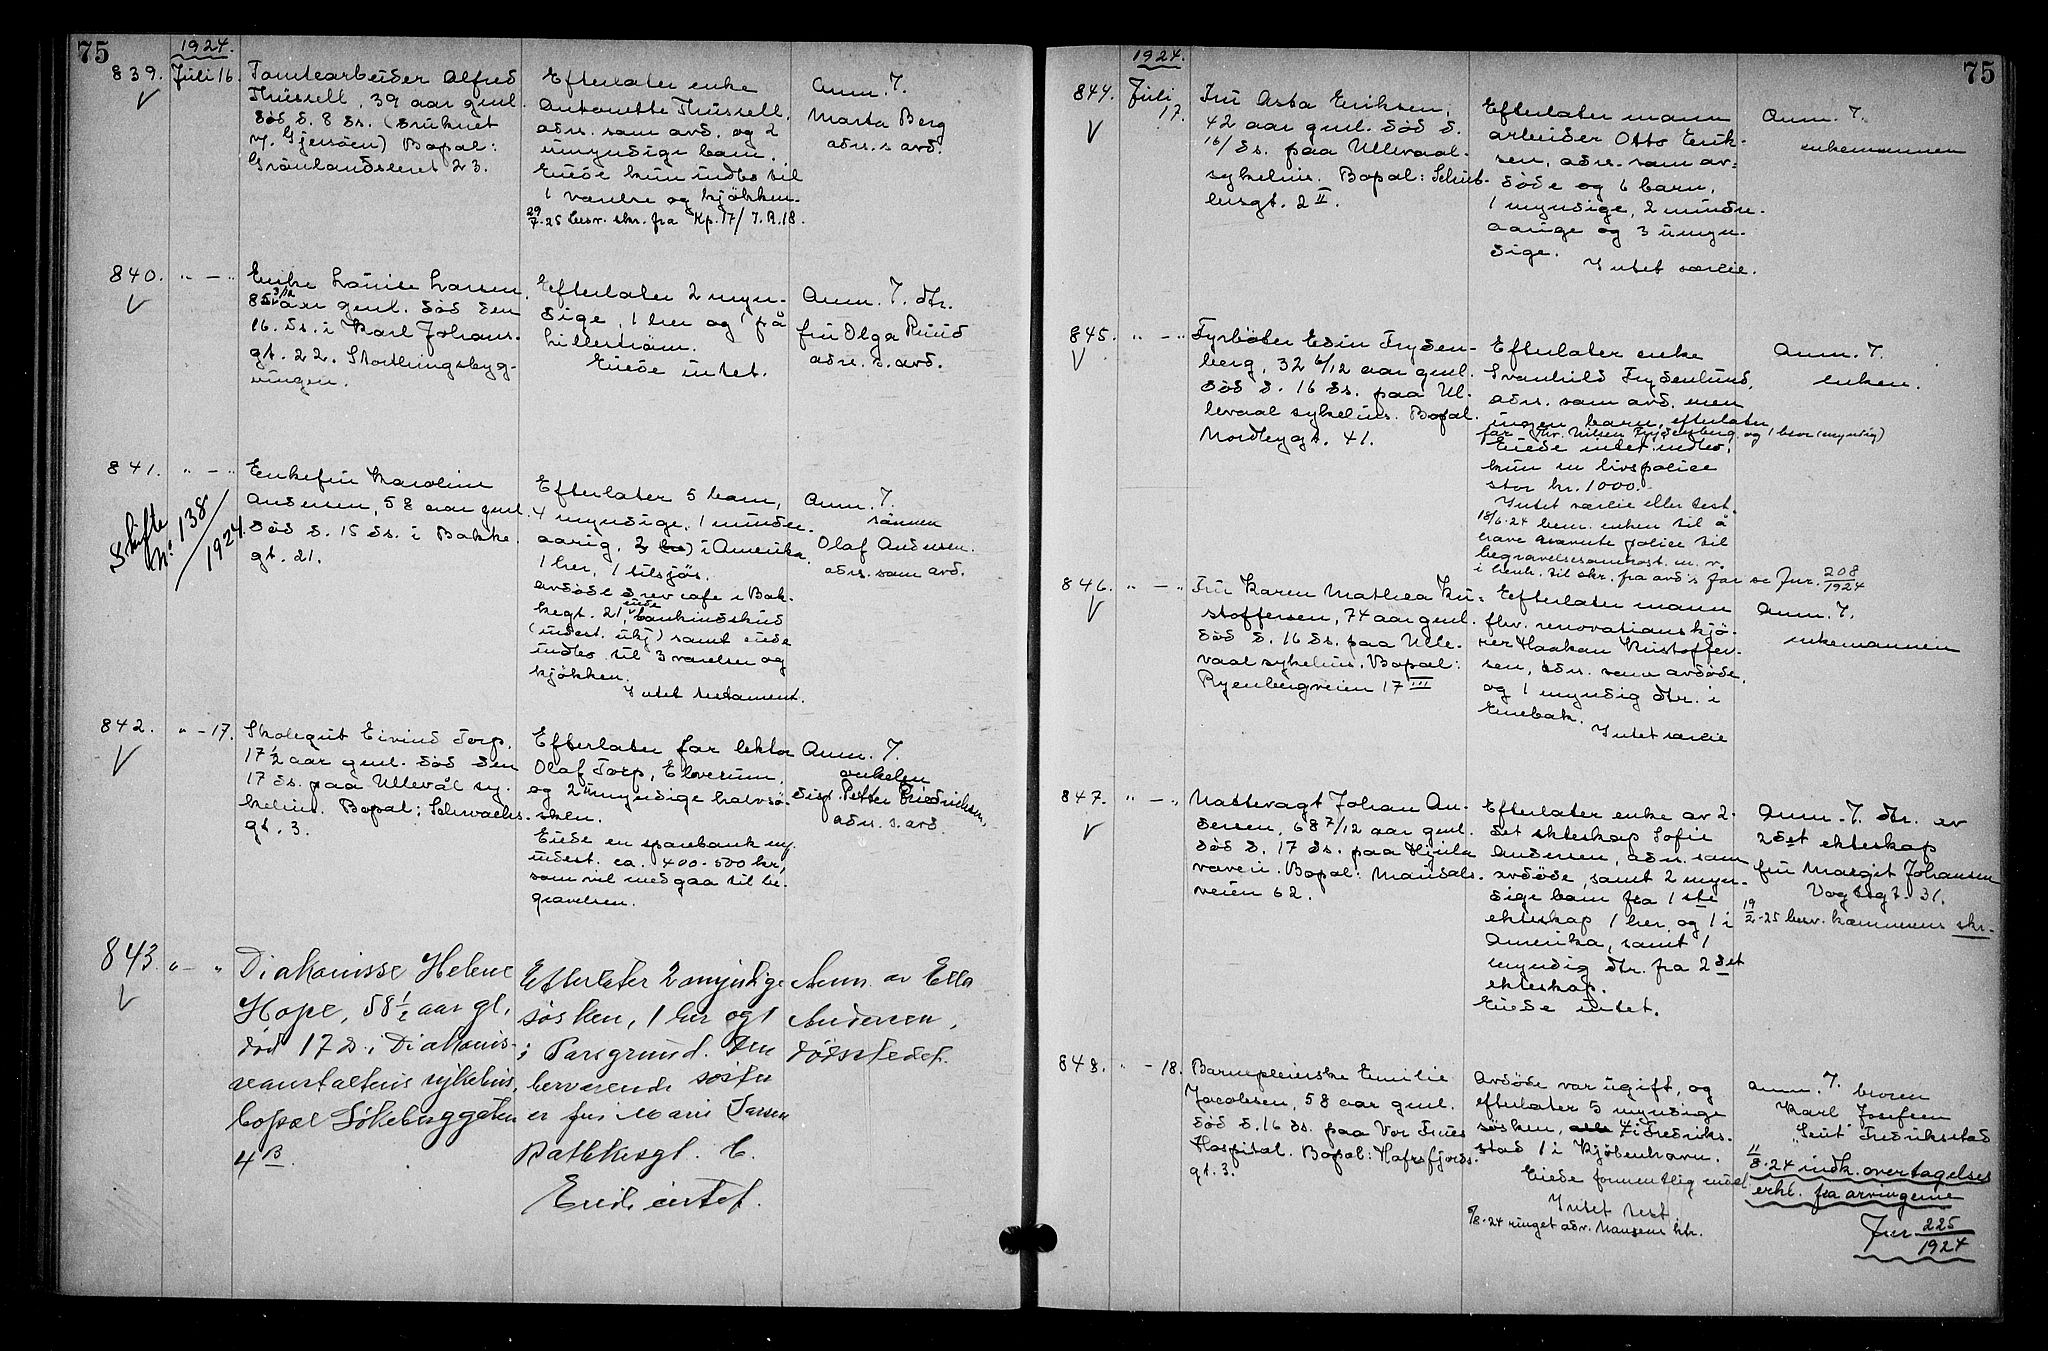 75
1924.
839. Juli 16. Tomtearbeider Alfred
Thursell, 39 aar gml.
död d. 8 ds. (druknet
v. Gjersöen) Bopæl:
Grönlandsleret 23.
Efterlater enke
Antonette Thursell,
adr. som avd. og 2
umyndige barn.
Eiede kun indbo til
1 værelse og kjökken.
29/7-25 besv. skr. fra Kp. 17/ J.R.18.
Anm. 7.
Marta Berg
adr. s. avd.
840. " — " Enke Louise Larsen,
85 3/12 aar gml. död den
16. ds. i Karl Johans-
gt. 22. Stortingsbyg-
ningen.
Efterlater 2 myn-
dige, 1 her og 1 på
Lilleström.
Eiede intet.
Anm. 7. dtr.
fru Olga Ruud
adr. s. avd.
841. " — " Enkefru Karoline
Andersen, 58 aar gml.
död d. 15 ds. i Bakke-
gt. 21.
Skifte
No. 138
/1924
Efterlater 5 barn,
4 myndige, 1 minder-
aarig, 3 i Amerika,
1 her, 1 tilsjös.
Avdöde drev cafe i Bak-
kegt. 21, eiede bankindskud
(indest. ukj) samt eiede
indbo til 3 værelser og
kjökken.
Intet testament.
Anm. 7.
sönnen
Olaf Andersen.
adr. som avd.
842. " - 17. Skolegut Eivind Torp,
17 1/2 aar gml. död den
17 ds. paa Ullevål sy-
kehus. Bopæl: Schwachs-
gt. 3.
Efterlater far lektor
Olaf Torp, Elverum,
og 2 umyndige halvsö-
sken.
Eiede en sparebank
indest. ca. 400-500 kr,
som vil medgaa til be-
gravelsen.
Anm. 7.
onkelen
disp. Petter Fredriksen,
adr. s. avd.
843. " — " Diakonisse Helene
Hope, 58 1/2 aar gl.,
död 17 ds. i Diakonis-
seanstaltens sykehus,
bopæl Løkeberggaten
4 B.
Efterlater 2 myndige
søsken, 1 her og 1
i Porsgrund. Den
herværende søster
er fru Marie Larsen
Rathkesgt. 6.
Eiede intet.
Anm. av Ella
Andersen,
dödsstedet.
75
1924.
844. Juli
17. Fru Asta Eriksen,
42 aar gml. död d.
16/ ds. paa Ullevaal-
sykehus. Bopæl: Schüb-
lersgt. 2 II.
Efterlater mann
arbeider Otto Erik-
sen, adr. som av-
döde og 6 barn,
1 myndige, 2 minder-
aarige og 3 umyn-
dige.
Intet særeie.
Anm. 7.
enkemannen
845. " — " Fyrböter Edin Fryden-
berg, 32 6/12 aar gml.
död d. 16 ds. paa Ul-
levaal sykehus. Bopæl.
Nordbygt. 41.
Efterlater enke
Svanhild Frydenlund,
adr. som avd. men
ingen barn, efterlater
far Chr. Nilsen Frydenberg og 1 bror (myndig)
Eiede intet indbo,
kun en livspolice
stor kr. 1000.-
Intet særeie eller test.
18/6-24 bem. enken til å
heve nævnte police til
begravelsesomkost. m. v.
i henh. til skr. fra avd's far se Jur. 208/1924
Anm. 7.
enken.
846. " — " Fru Karen Mathea Kri-
stoffersen, 74 aar gml.
död d. 16 ds. paa Ulle-
vaal sykehus. Bopæl:
Ryenbergveien 17 III
Efterlater mann
fhv. renovationskjö-
rer Haakon Kristoffer-
sen, adr. som avdöde,
og 1 myndig dtr. i
Enebak.
Intet særeie
Anm. 7.
enkemannen
847. " — " Nattevagt Johan An-
dersen, 68 7/12 aar gml.
död d. 17 ds. paa Hjula
væveri. Bopæl: Maridals-
veien 62.
Efterlater enke av 2-
det ekteskap Sofie
Andersen, adr. som
avdöde, samt 2 myn-
dige barn fra 1ste
ekteskap 1 her, og 1 i
Amerika, samt 1
myndig dtr. fra 2det
ekteskap.
Eiede intet.
Anm. 7. dtr. av
2det ekteskap
fru Margit Johansen
Vogtsgt. 31.
19/2-25 besv. kæmnerens skr.
848. " - 18. Barnepleierske Emilie
Jacobsen, 58 aar gml.
död d. 16 ds. paa Vor Frues
Hospital. Bopæl: Hafrsfjords-
gt. 3.
Avdöde var ugift, og
efterlater 5 myndige
sösken, alle 4 i Fredrik-
stad 1 i Kjöbenhavn.
Eiede formentlig endel.
Intet test.
9/8-24 ringet adv. Mausens ktr.
Anm. 7. broren
Karl Josefsen
"Leut" Fredrikstad
11/8-24 indk. overtagelses
erkl. fra arvingerne
Jur 225/1924